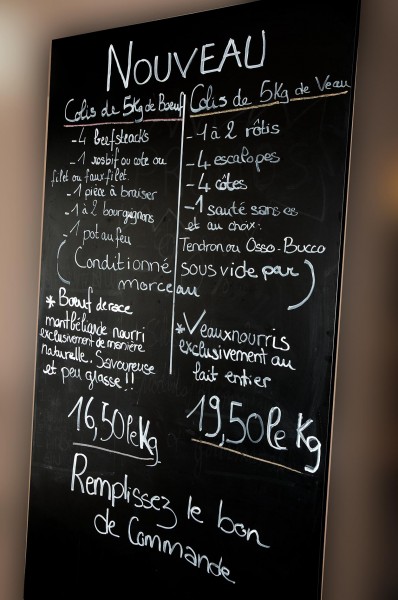 NOUVEAU
Colis de 5Kg de Boeuf
- 4 beefsteacks
- 1 rosbif ou cote ou
filet ou faux filet.
- 1 pièce à braiser
- 1 à 2 bourguignons
- 1 pot au feu
Colis de 5Kg de Veau
- 1 à 2 rôtis
- 4 escalopes
- 4 côtes
- 1 sauté sans os
et au choix:
Tendron ou Osso-Bucco
(Conditionné sous vide par
morceau)
* Boeuf de race
montbéliarde nourri
exclusivement de manière
naturelle. Savoureuse
et peu glasse!!
* Veaux nourris
exclusivement au
lait entier
16,50 le Kg
19,50 le Kg
Remplissez le bon
de Commande